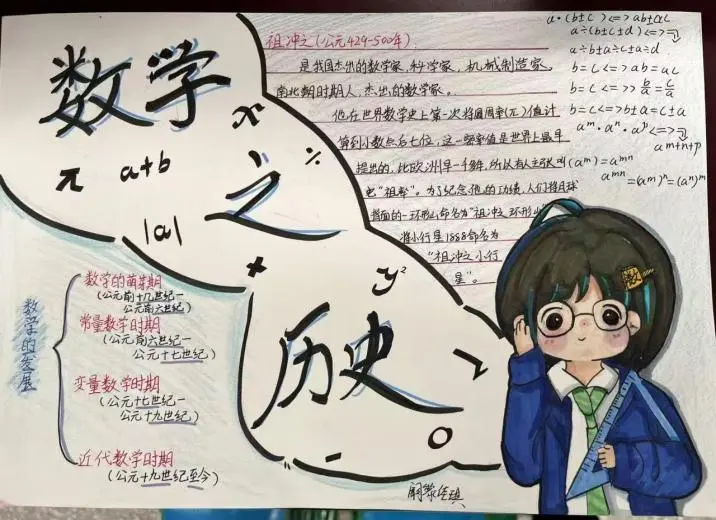 数学
之
历史
x
÷
π
a+b
|a|
+
y²
-
祖冲之(公元429-500年)
是我国杰出的数学家,科学家,机械制造家。
南北朝时期人,杰出的数学家。
他在世界数学史上第一次将圆周率(π)值计
算到小数点后七位,这一
率值是世界上最早
提出的,比欧洲早一千年,所以有人主张叫
它"祖率"。为了纪念他的功绩,人们将月球
背面的一环形山命名为"祖冲之环形山"
将小行星1888命名为
"祖冲之小行
星"。
a·(b±c)<=>ab±ac
a÷(b±c±d)<=>
a÷b±a÷c±a÷d
b=c<=>ab=ac
b=c<=>b/a=c/a
b=c<=>b±a=c±a
aᵐ·aⁿ·aᵖ<=>
aᵐ⁺ⁿ⁺ᵖ
(aᵐ)=aᵐⁿ
aᵐⁿ=(aᵐ)ⁿ=(aⁿ)ᵐ
数学的发展
数学的萌芽期
(公元前十几世纪—
公元前六世纪)
常量数学时期
(公元前六世纪—
公元十七世纪)
变量数学时期
(公元十七世纪—
公元十九世纪)
近代数学时期
(公元十九世纪至今)
数